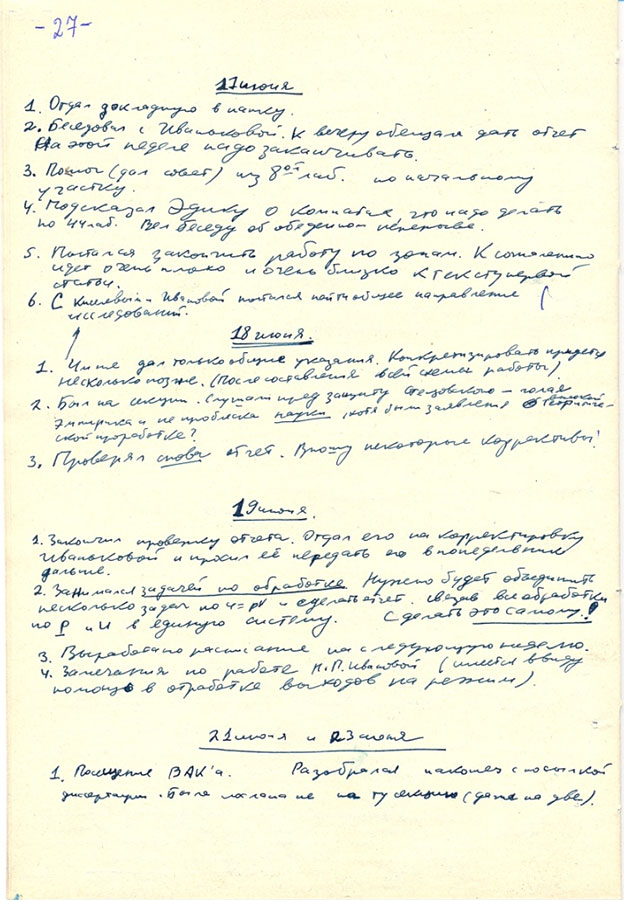 - 27 -
17 июня
1. Отдал докладную в папку.
2. Беседовал с Иваньковой. К вечеру обещали дать отчет
На этой неделе надо заканчивать.
3. Помощь (дал совет) из 8ой лаб. по начальному
участку.
4. Подсказал Эдику о что надо делать
по 44 лаб. Вел беседу об обеденном перерыве.
5. Пытался закончить работу по зонам. К сожалению
идет очень плохо и очень близко к тексту первой
статьи.
6. С Киселевым и Ивановой пытался найти общее направление
исследований.
18 июня.
1. дал только общие указания. Конкретизировать придется
несколько позже. (После составления всей схемы работы).
2. Был на секции. Слушали пред защиту – голая
эмпирика и не проблеска науки, хотя были заявления о высокой теоретиче-
ской проработке?
3. Проверял снова отчет. Вношу некоторые коррективы!
19 июня.
1. Закончил проверку отчета. Отдал его на корректировку
Иваньковой и просил её передать его в понедельник
дальше.
2. Занимался задачей по обработке Нужно будет объединить
несколько задач по и сделать отчет. связав все обработки
по P и U в единую систему. Сделать это самому!
3. Выработано расписание на следующую неделю.
4. Замечания по работе Н.П. Ивановой (имеется ввиду
помощь в отработке выходов на режим).
21 июня и 23 июня
1. Посещение ВАК'а. Разобрался наконец с посылкой
диссертации. Была послана не на ту секцию (даже на две).